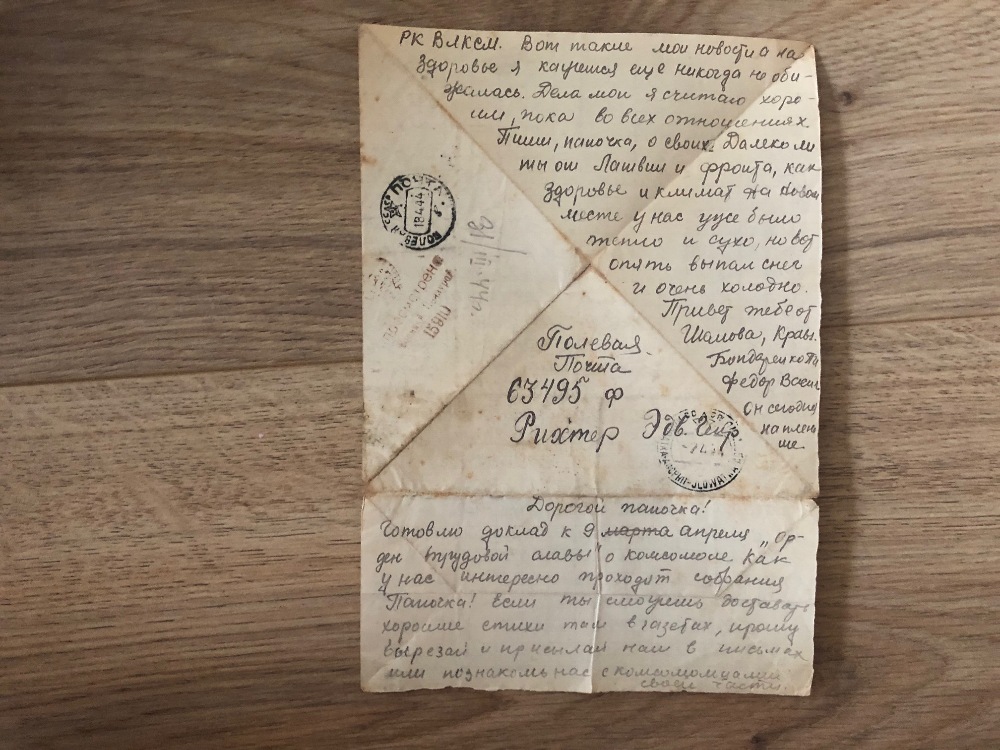 РК ВЛКСМ. Вот такие мои новости а на
здоровье я кажется еще никогда не оби-
жалась. Дела мои я считаю хоро-
ими, пока во всех отношениях.
Пиши, папочка, о своих. Далеко ли
ты от Латвии и фронта, как
здоровье и климат на новом
месте у нас уже было
тепло и сухо, но вот
опять выпал снег
и очень холодно.
Привет тебе от
Шамова, Кравч.
Бондаренко
Федор Васил
Он сегодня
на плену
ше.
ПОЧТА
18.4.44
ПОЛЕВАЯ
31/III-44г.
Просмотрено
15910
Полевая
Почта
63495 ф
Рихтер Эдв.
Дорогой папочка!
Готовлю доклад к 9 марта апреля „Ор-
ден трудовой славы" о комсомоле. Как
у нас интересно проходят собрания
Папочка! Если ты сможешь доставать
хорошие стихи там в газетах, прошу
вырезай и присылай нам в письмах
или познакомь нас с комсомольцами
своей части.